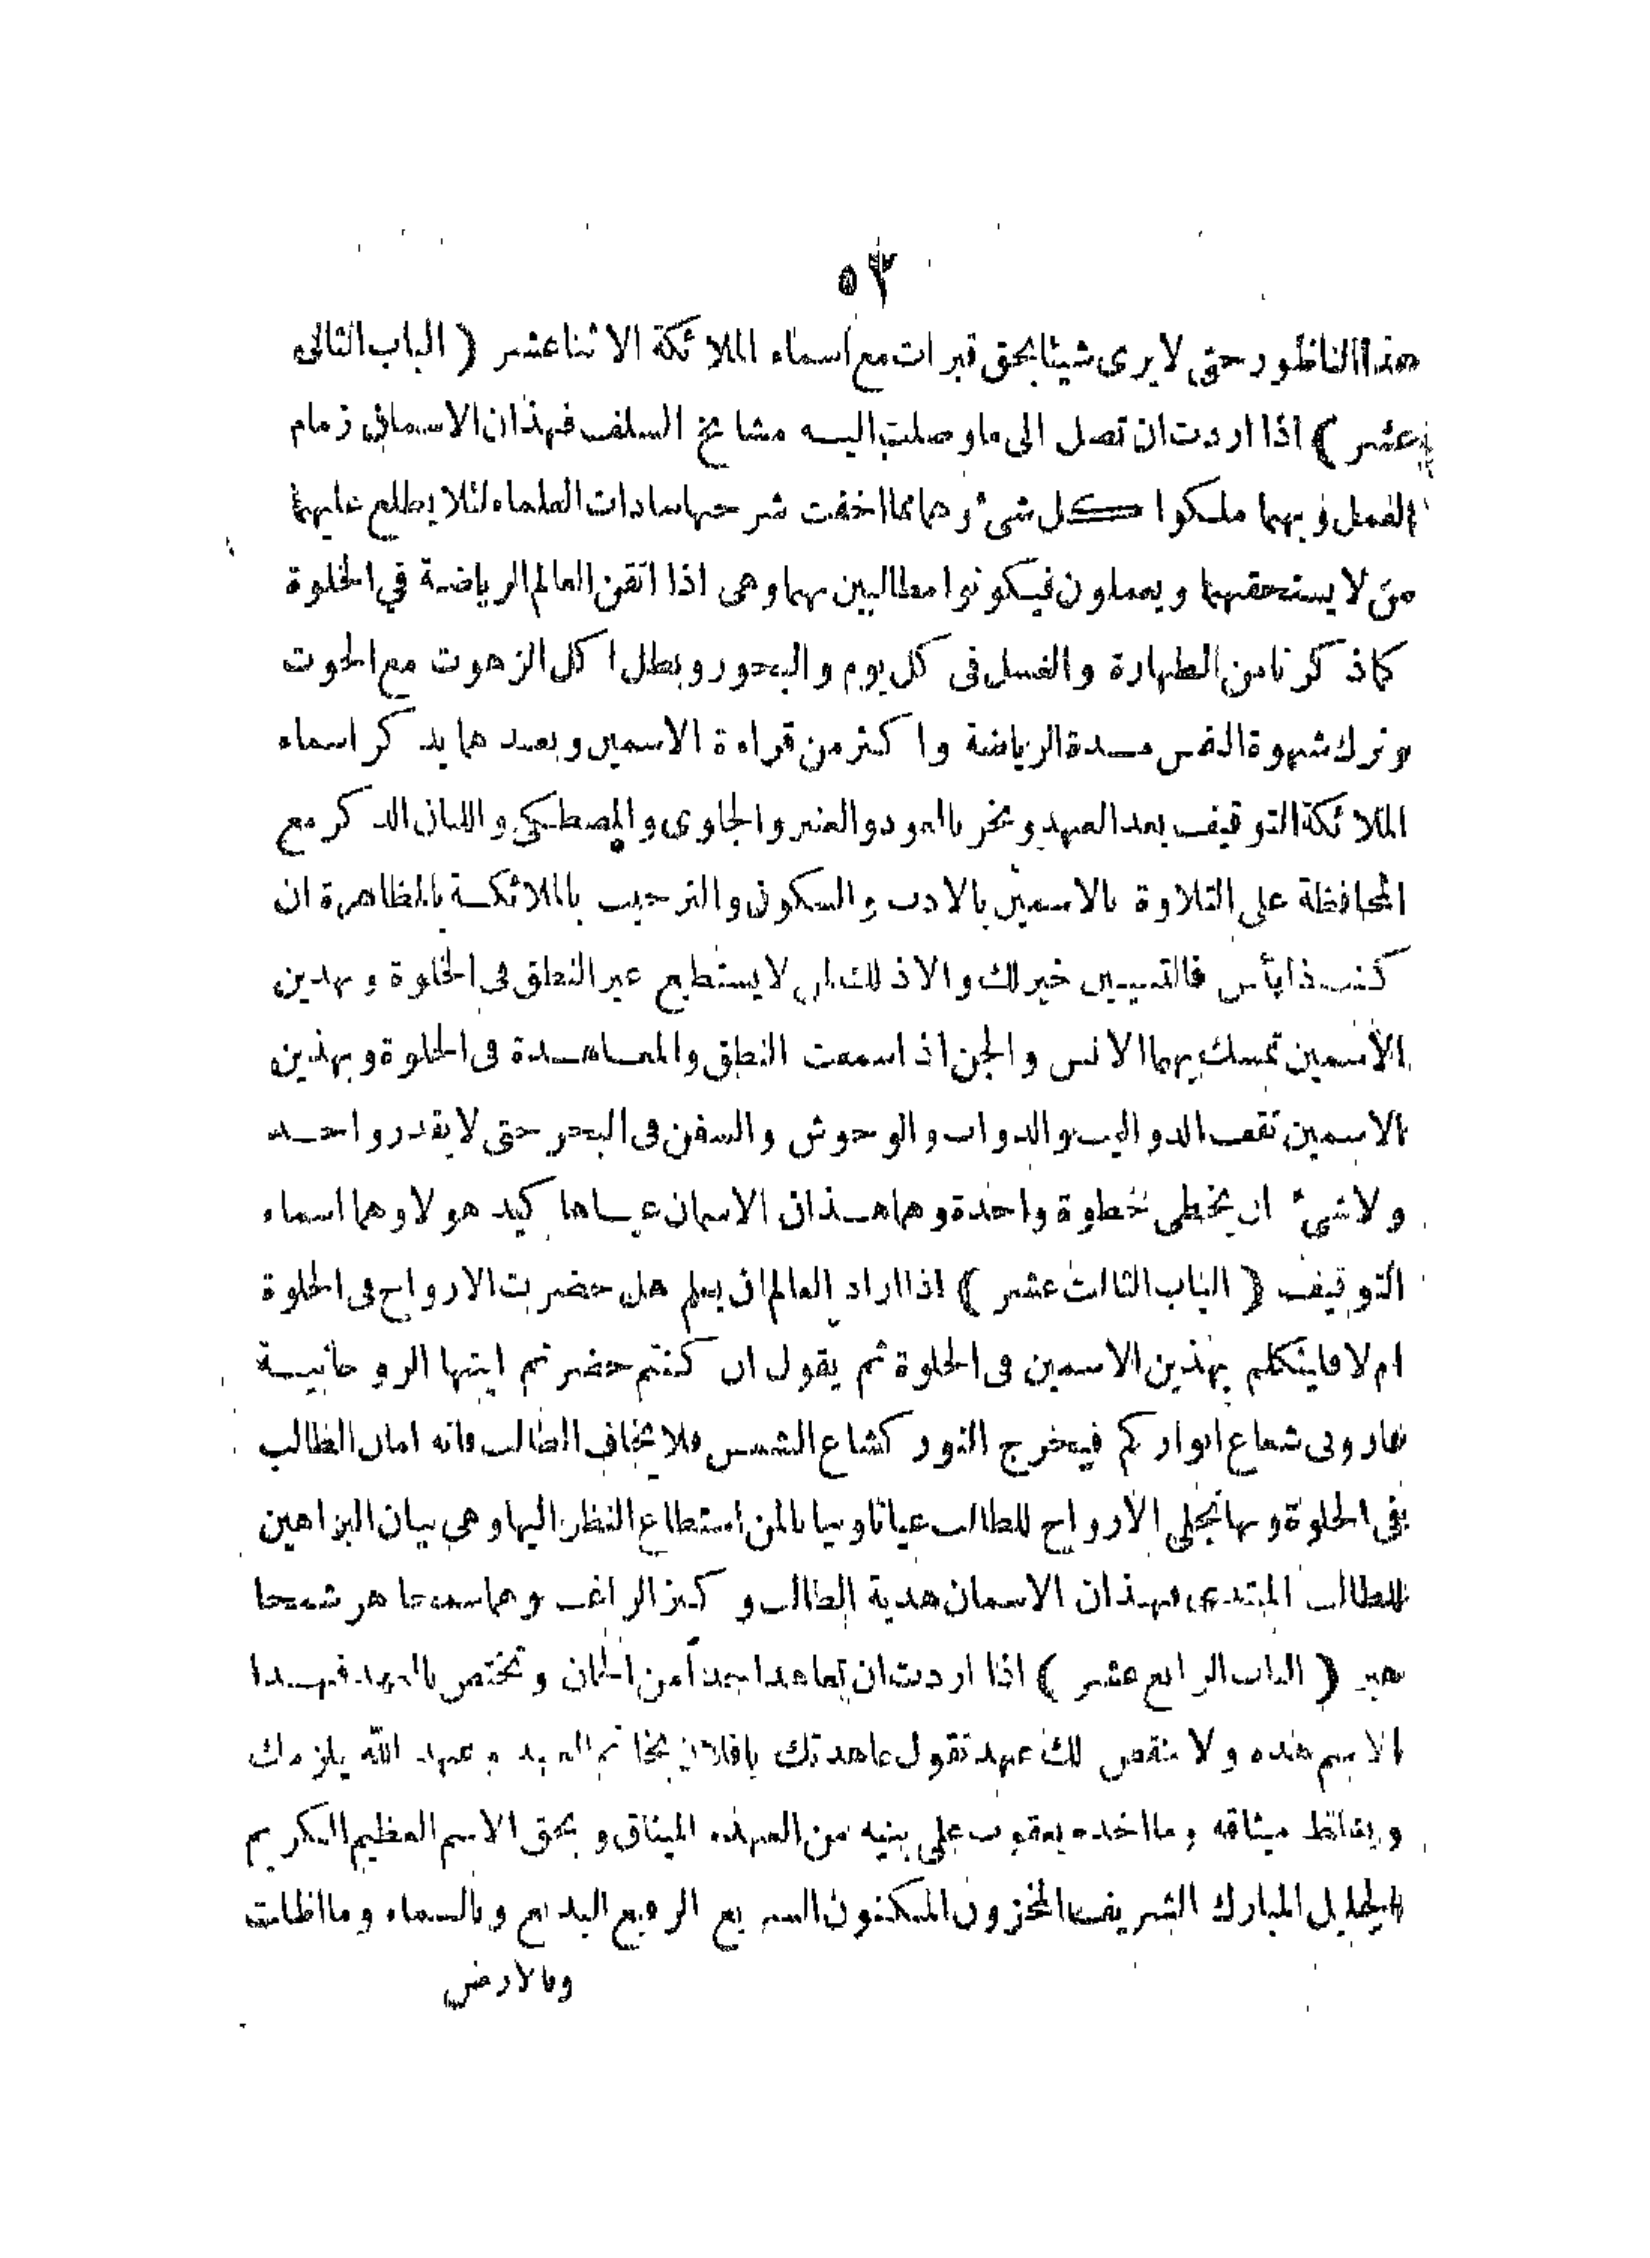 ٥٣
هذا الناظور حتى لا يرى شيئا بحق قبرات مع اسماء الملائكة الاثنا عشر ( الباب الثانى
عشر ) اذا اردت ان تصل الى ما وصلت اليه مشايخ السلف فهذان الاسمان زمام
العمل وبهما ملكوا كل شىء وهما مما اخفت شرحها سادات العلماء لئلا يطلع عليهما
من لا يستحقهما ويعملون فيكونوا مطالبين بهما وهى اذا اتقن العالم الرياضة فى الخلوة
كما ذكرنا من الطهارة والغسل فى كل يوم والبخور وبطل اكل الزهوت مع الحوت
وترك شهوة النفس مدة الرياضة واكثر من قراءة الاسمين وبعد هما يذكر اسماء
الملائكة التوقيف بعد العهد ويخر بالعود والعنبر والجاوى والمصطكى واللبان الذكر مع
المحافظة على التلاوة بالاسمين بالادب والسكون والترحيب بالملائكة بالمظاهرة ان
كنت ذا بأس فالتسبين خير لك والا ذلك لن لا يستطيع غير النطق فى الخلوة وبهذين
الاسمين تمسك بهما الانس والجن اذا سمعت النطق والمعاهدة فى الخلوة وبهذين
الاسمين تقف الدواليب والدواب والوحوش والسفن فى البحر حتى لا يقدر واحد
ولا شىء ان يخطى خطوة واحدة وهما هذان الاسمان عساها كيد هولا وهما اسماء
التوقيف ( الباب الثالث عشر ) اذا اراد العالم ان يعلم هل حضرت الارواح فى الخلوة
ام لا فليتكلم بهذين الاسمين فى الخلوة ثم يقول ان كنتم حضرتم ايتها الروحانية
فارونى شعاع انواركم فيخرج النور كشاع الشمس فلا يخاف الطالب فانه امان الطالب
فى الخلوة وبها تجلى الارواح للطالب عيانا وبيانا لمن استطاع النظر اليها وهى بيان البراهين
للطالب المبتدى فهذان الاسمان هدية الطالب وكنز الراغب وهما سمعا هر شمعا
هير ( الباب الرابع عشر ) اذا اردت ان تعاهد احدا من الجان وتختص بالعهد فهدا
الاسم هذه ولا ينقص لك عهد تقول عاهدتك يا فلان بخاتم العهد وعهد الله يلزمك
ويغلظ ميثاقه وما اخذه يعقوب على بنيه من العهد الميثاق وبحق الاسم العظيم الكريم
الجليل المبارك الشريف المخزون المكنون السريع الرفيع البديع وبالسماء وما اظلت
وبالارض